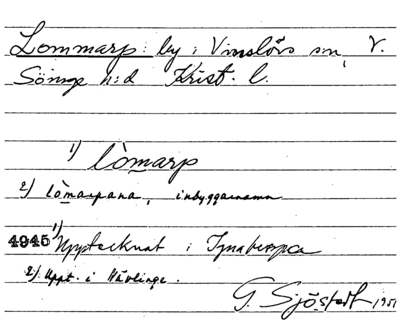 Lommarp: by i Vinslövs sn, V.
Göinge h:d Krist. l.
1) lòmarp
2) lòmarpana, inbyggarnamn
4945 1) Upptecknat i Ignaberga
2) Uppt. i Nävlinge.
G. Sjöstedt 1951